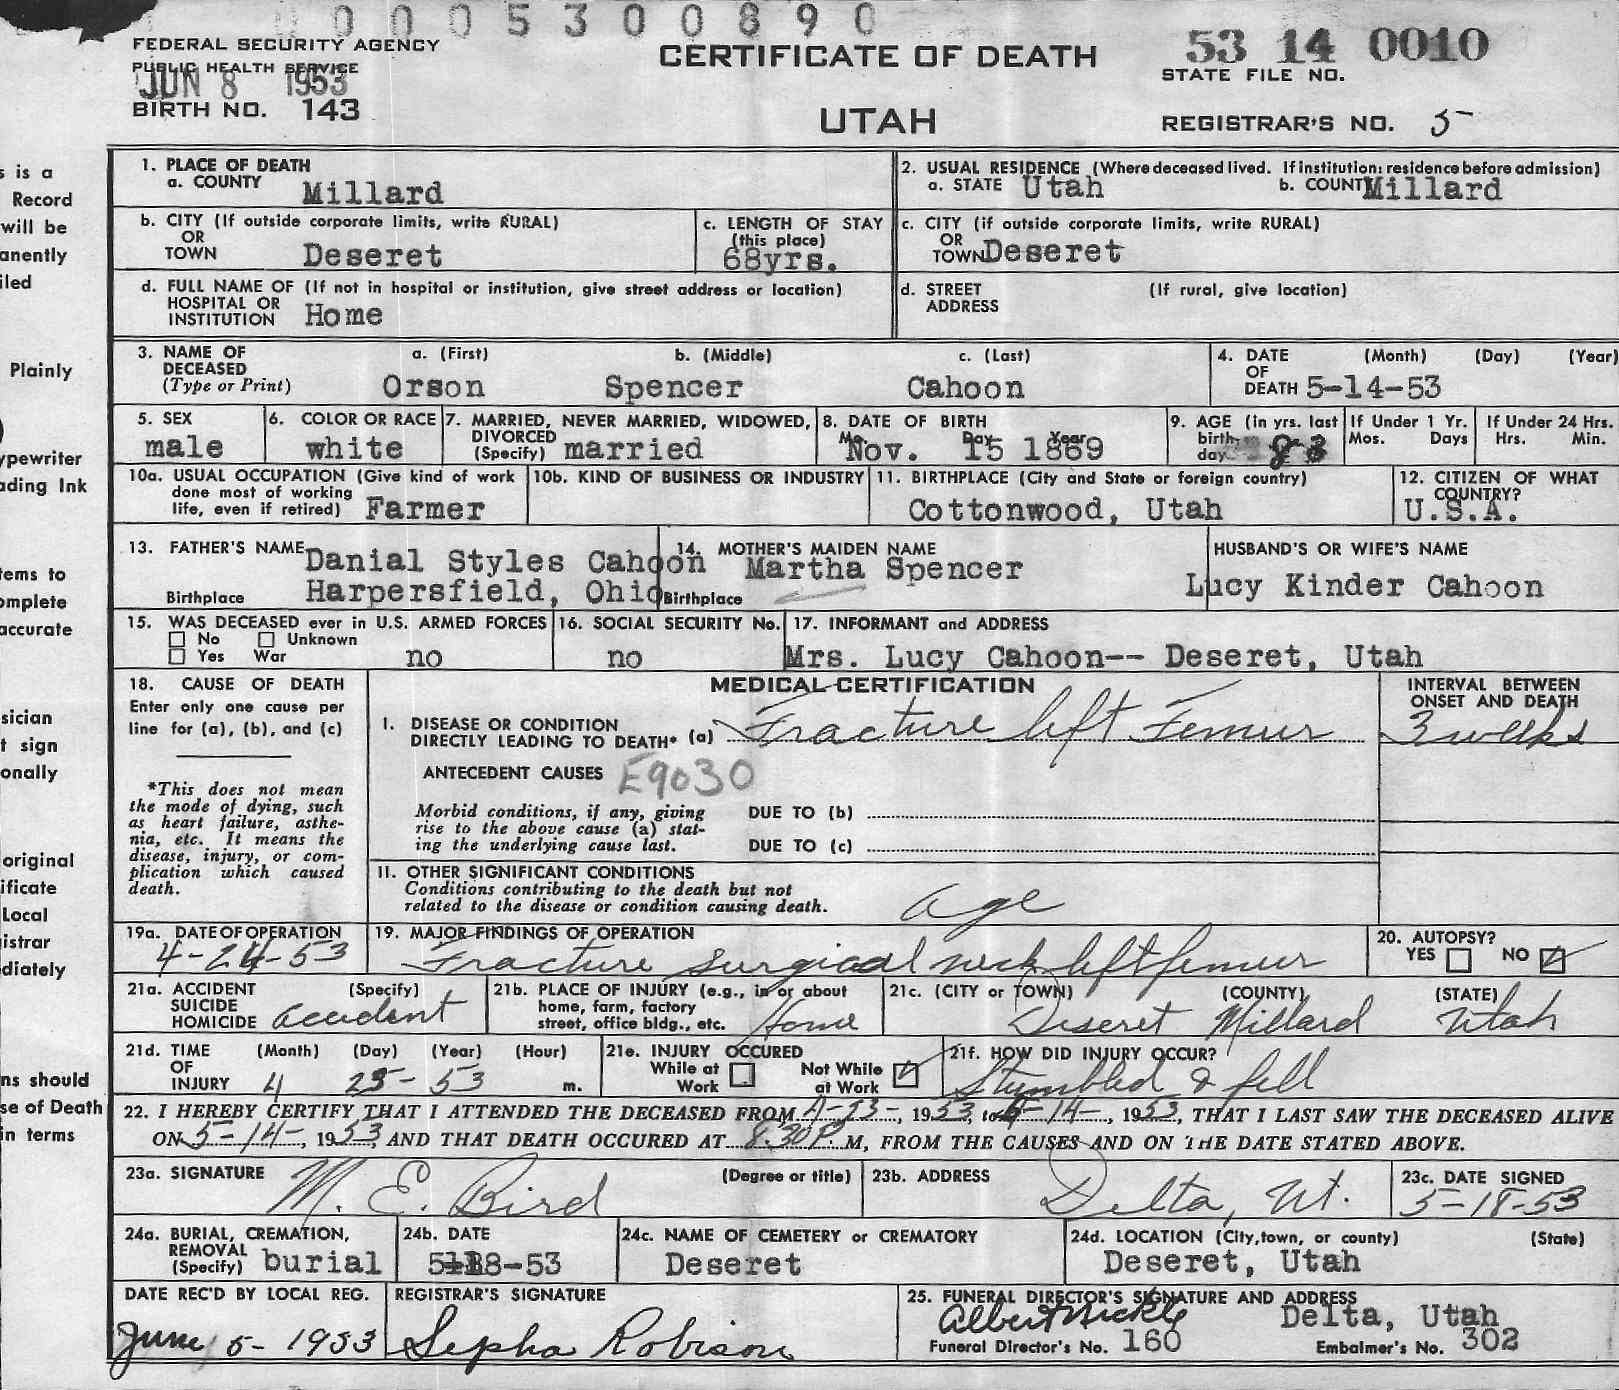 0005300890
FEDERAL SECURITY AGENCY
PUBLIC HEALTH SERVICE
JUN 8 1953
BIRTH NO. 143
CERTIFICATE OF DEATH
UTAH
53 14 0010
STATE FILE NO.
REGISTRAR'S NO. 5
s is a
Record
will be
anently
iled
Plainly
ypewriter
ading Ink
tems to
omplete
accurate
sician
t sign
onally
original
ificate
Local
istrar
diately
ns should
se of Death
in terms
1. PLACE OF DEATH
a. COUNTY Millard
2. USUAL RESIDENCE (Where deceased lived. If institution: residence before admission)
a. STATE Utah b. COUNTY Millard
b. CITY (If outside corporate limits, write RURAL)
OR
TOWN Deseret
c. LENGTH OF STAY
(this place)
68yrs.
c. CITY (if outside corporate limits, write RURAL)
OR
TOWN Deseret
d. FULL NAME OF (If not in hospital or institution, give street address or location)
HOSPITAL OR
INSTITUTION Home
d. STREET (If rural, give location)
ADDRESS
3. NAME OF a. (First) b. (Middle) c. (Last)
DECEASED
(Type or Print) Orson Spencer Cahoon
4. DATE (Month) (Day) (Year)
OF
DEATH 5-14-53
5. SEX
male
6. COLOR OR RACE
white
7. MARRIED, NEVER MARRIED, WIDOWED,
DIVORCED
(Specify) married
8. DATE OF BIRTH
Mo. Day Year
Nov. 15 1869
9. AGE (in yrs. last
birth-
day 83
If Under 1 Yr.
Mos. Days
If Under 24 Hrs.
Hrs. Min.
10a. USUAL OCCUPATION (Give kind of work
done most of working
life, even if retired) Farmer
10b. KIND OF BUSINESS OR INDUSTRY
11. BIRTHPLACE (City and State or foreign country)
Cottonwood, Utah
12. CITIZEN OF WHAT
COUNTRY?
U.S.A.
13. FATHER'S NAME Danial Styles Cahoon
Birthplace Harpersfield, Ohio
14. MOTHER'S MAIDEN NAME
Martha Spencer
Birthplace
HUSBAND'S OR WIFE'S NAME
Lucy Kinder Cahoon
15. WAS DECEASED ever in U.S. ARMED FORCES
No Unknown
Yes War no
16. SOCIAL SECURITY No.
no
17. INFORMANT and ADDRESS
Mrs. Lucy Cahoon-- Deseret, Utah
18. CAUSE OF DEATH
Enter only one cause per
line for (a), (b), and (c)
*This does not mean
the mode of dying, such
as heart failure, asthe-
nia, etc. It means the
disease, injury, or com-
plication which caused
death.
MEDICAL CERTIFICATION
I. DISEASE OR CONDITION
DIRECTLY LEADING TO DEATH* (a) Fracture left Femur
INTERVAL BETWEEN
ONSET AND DEATH
3 weeks
ANTECEDENT CAUSES E9030
Morbid conditions, if any, giving
rise to the above cause (a) stat-
ing the underlying cause last.
DUE TO (b)
DUE TO (c)
II. OTHER SIGNIFICANT CONDITIONS
Conditions contributing to the death but not
related to the disease or condition causing death.
age
19a. DATE OF OPERATION
4-24-53
19. MAJOR FINDINGS OF OPERATION
Fracture surgical neck left femur
20. AUTOPSY?
YES NO
21a. ACCIDENT (Specify)
SUICIDE
HOMICIDE accident
21b. PLACE OF INJURY (e.g., in or about
home, farm, factory
street, office bldg., etc. Home
21c. (CITY or TOWN) (COUNTY) (STATE)
Deseret Millard Utah
21d. TIME (Month) (Day) (Year) (Hour)
OF
INJURY 4 23-53 m.
21e. INJURY OCCURED
While at
Work
Not While
at Work
21f. HOW DID INJURY OCCUR?
Stumbled & fell
22. I HEREBY CERTIFY THAT I ATTENDED THE DECEASED FROM 4-23-, 1953, to 5-14-, 1953, THAT I LAST SAW THE DECEASED ALIVE
ON 5-14-, 1953, AND THAT DEATH OCCURED AT 8:30P. M, FROM THE CAUSES AND ON THE DATE STATED ABOVE.
23a. SIGNATURE (Degree or title)
M. E. Bird
23b. ADDRESS
Delta, Ut.
23c. DATE SIGNED
5-18-53
24a. BURIAL, CREMATION,
REMOVAL
(Specify) burial
24b. DATE
5-18-53
24c. NAME OF CEMETERY or CREMATORY
Deseret
24d. LOCATION (City, town, or county) (State)
Deseret, Utah
DATE REC'D BY LOCAL REG.
June 5-1953
REGISTRAR'S SIGNATURE
Sepha Robison
25. FUNERAL DIRECTOR'S SIGNATURE AND ADDRESS
Albert Nickle Delta, Utah
Funeral Director's No. 160 Embalmer's No. 302